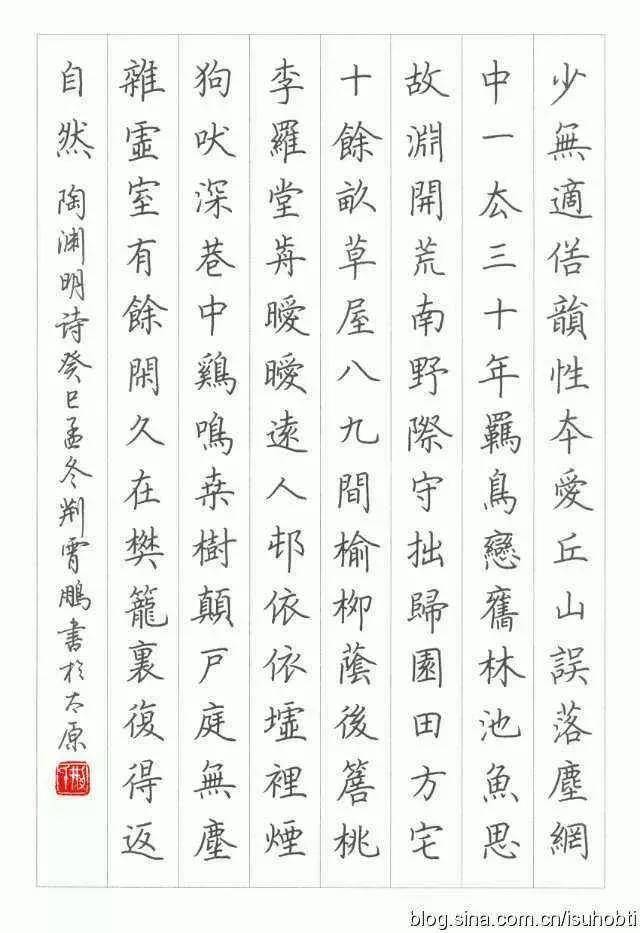 少無適俗韻性本愛丘山誤落塵網
中一去三十年羈鳥戀舊林池魚思
故淵開荒南野際守拙歸園田方宅
十餘畝草屋八九間榆柳蔭後簷桃
李羅堂前曖曖遠人邨依依墟裡煙
狗吠深巷中鷄鳴桒樹顛戸庭無塵
雜虛室有餘閑久在樊籠裏復得返
自然 陶淵明詩癸巳孟冬荆霄鵬書於太原
blog.sina.com.cn/isuhobti